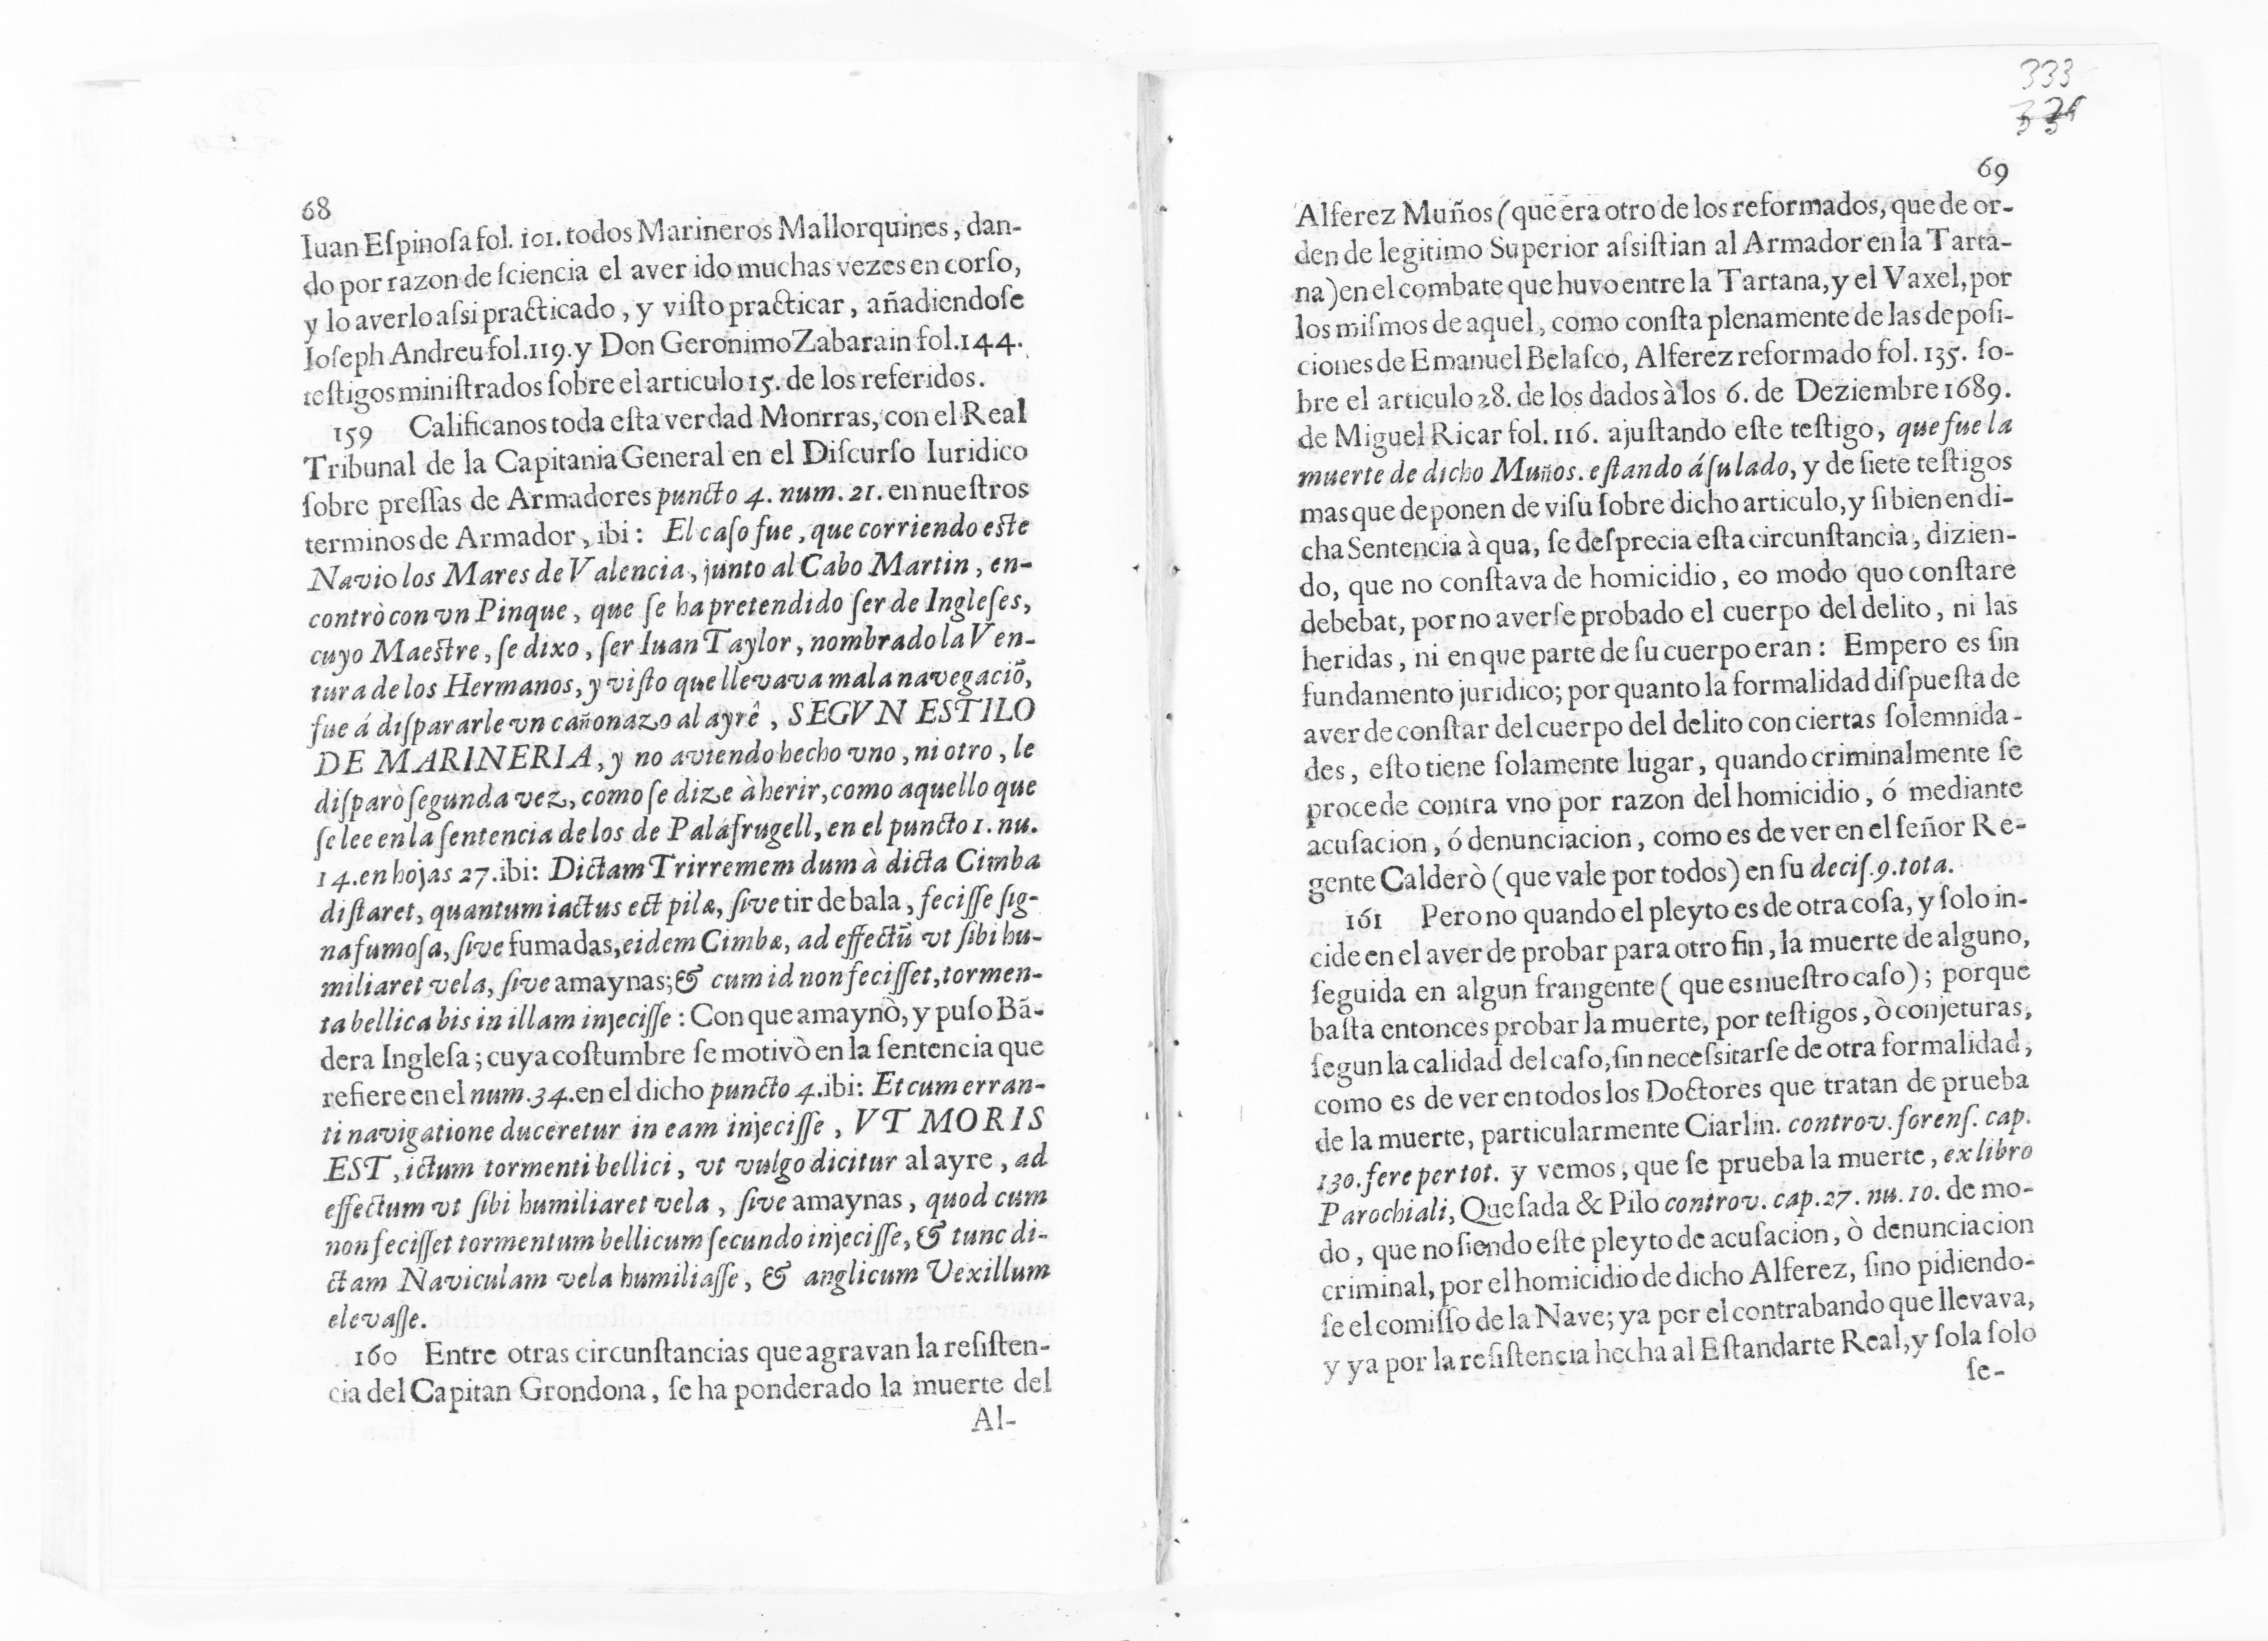 68
Iuan Eſpinoſa fol. 101. todos Marineros Mallorquines, dan-
do por razon de ſciencia el aver ido muchas vezes en corſo,
y lo averlo aſsi practicado, y viſto practicar, añadiendoſe
Ioſeph Andreu fol. 119. y Don Geronimo Zabarain fol. 144.
teſtigos miniſtrados ſobre el articulo 15. de los referidos.
159 Calificanos toda eſta verdad Monrras, con el Real
Tribunal de la Capitania General en el Diſcurſo Iuridico
ſobre preſſas de Armadores puncto 4. num. 21. en nueſtros
terminos de Armador, ibi: El caſo fue, que corriendo eſte
Navio los Mares de Valencia, junto al Cabo Martin, en-
contrò con vn Pinque, que ſe ha pretendido ſer de Ingleſes,
cuyo Maeſtre, ſe dixo, ſer Iuan Taylor, nombrado la Ven-
tura de los Hermanos, y viſto que llevava mala navegaciõ,
fue á diſpararle vn cañonazo al ayrê, SEGVN ESTILO
DE MARINERIA, y no aviendo hecho vno, ni otro, le
diſparò ſegunda vez, como ſe dize à herir, como aquello que
ſe lee en la ſentencia de los de Palafrugell, en el puncto 1. nu.
14. en hojas 27. ibi: Dictam Trirremem dum à dicta Cimba
diſtaret, quantum iactus ect pilæ, ſive tir de bala, feciſſe ſig-
na fumoſa, ſive fumadas, eidem Cimbæ, ad effectũ vt ſibi hu-
miliaret vela, ſive amaynas; & cum id non feciſſet, tormen-
ta bellica bis in illam injeciſſe: Con que amaynò, y puſo Bã-
dera Ingleſa; cuya coſtumbre ſe motivò en la ſentencia que
refiere en el num. 34. en el dicho puncto 4. ibi: Et cum erran-
ti navigatione duceretur in eam injeciſſe, VT MORIS
EST, ictum tormenti bellici, vt vulgo dicitur al ayre, ad
effectum vt ſibi humiliaret vela, ſive amaynas, quod cum
non feciſſet tormentum bellicum ſecundo injeciſſe, & tunc di-
ctam Naviculam vela humiliaſſe, & anglicum Vexillum
elevaſſe.
160 Entre otras circunſtancias que agravan la reſiſten-
cia del Capitan Grondona, ſe ha ponderado la muerte del
Al-
333
69
Alferez Muños (que era otro de los reformados, que de or-
den de legitimo Superior aſsiſtian al Armador en la Tarta-
na) en el combate que huvo entre la Tartana, y el Vaxel, por
los miſmos de aquel, como conſta plenamente de las depoſi-
ciones de Emanuel Belaſco, Alferez reformado fol. 135. ſo-
bre el articulo 28. de los dados à los 6. de Deziembre 1689.
de Miguel Ricar fol. 116. ajuſtando eſte teſtigo, que fue la
muerte de dicho Muños. eſtando á ſu lado, y de ſiete teſtigos
mas que deponen de viſu ſobre dicho articulo, y ſi bien en di-
cha Sentencia à qua, ſe deſprecia eſta circunſtancia, dizien-
do, que no conſtava de homicidio, eo modo quo conſtare
debebat, por no averſe probado el cuerpo del delito, ni las
heridas, ni en que parte de ſu cuerpo eran: Empero es ſin
fundamento juridico; por quanto la formalidad diſpueſta de
aver de conſtar del cuerpo del delito con ciertas ſolemnida-
des, eſto tiene ſolamente lugar, quando criminalmente ſe
procede contra vno por razon del homicidio, ó mediante
acuſacion, ó denunciacion, como es de ver en el ſeñor Re-
gente Calderò (que vale por todos) en ſu deciſ. 9. tota.
161 Pero no quando el pleyto es de otra coſa, y ſolo in-
cide en el aver de probar para otro fin, la muerte de alguno,
ſeguida en algun frangente (que es nueſtro caſo); porque
baſta entonces probar la muerte, por teſtigos, ò conjeturas,
ſegun la calidad del caſo, ſin neceſsitarſe de otra formalidad,
como es de ver en todos los Doctores que tratan de prueba
de la muerte, particularmente Ciarlin. controv. forenſ. cap.
130. fere per tot. y vemos, que ſe prueba la muerte, ex libro
Parochiali, Queſada & Pilo controv. cap. 27. nu. 10. de mo-
do, que no ſiendo eſte pleyto de acuſacion, ò denunciacion
criminal, por el homicidio de dicho Alferez, ſino pidiendo-
ſe el comiſſo de la Nave; ya por el contrabando que llevava,
y ya por la reſiſtencia hecha al Eſtandarte Real, y ſola ſolo
ſe-